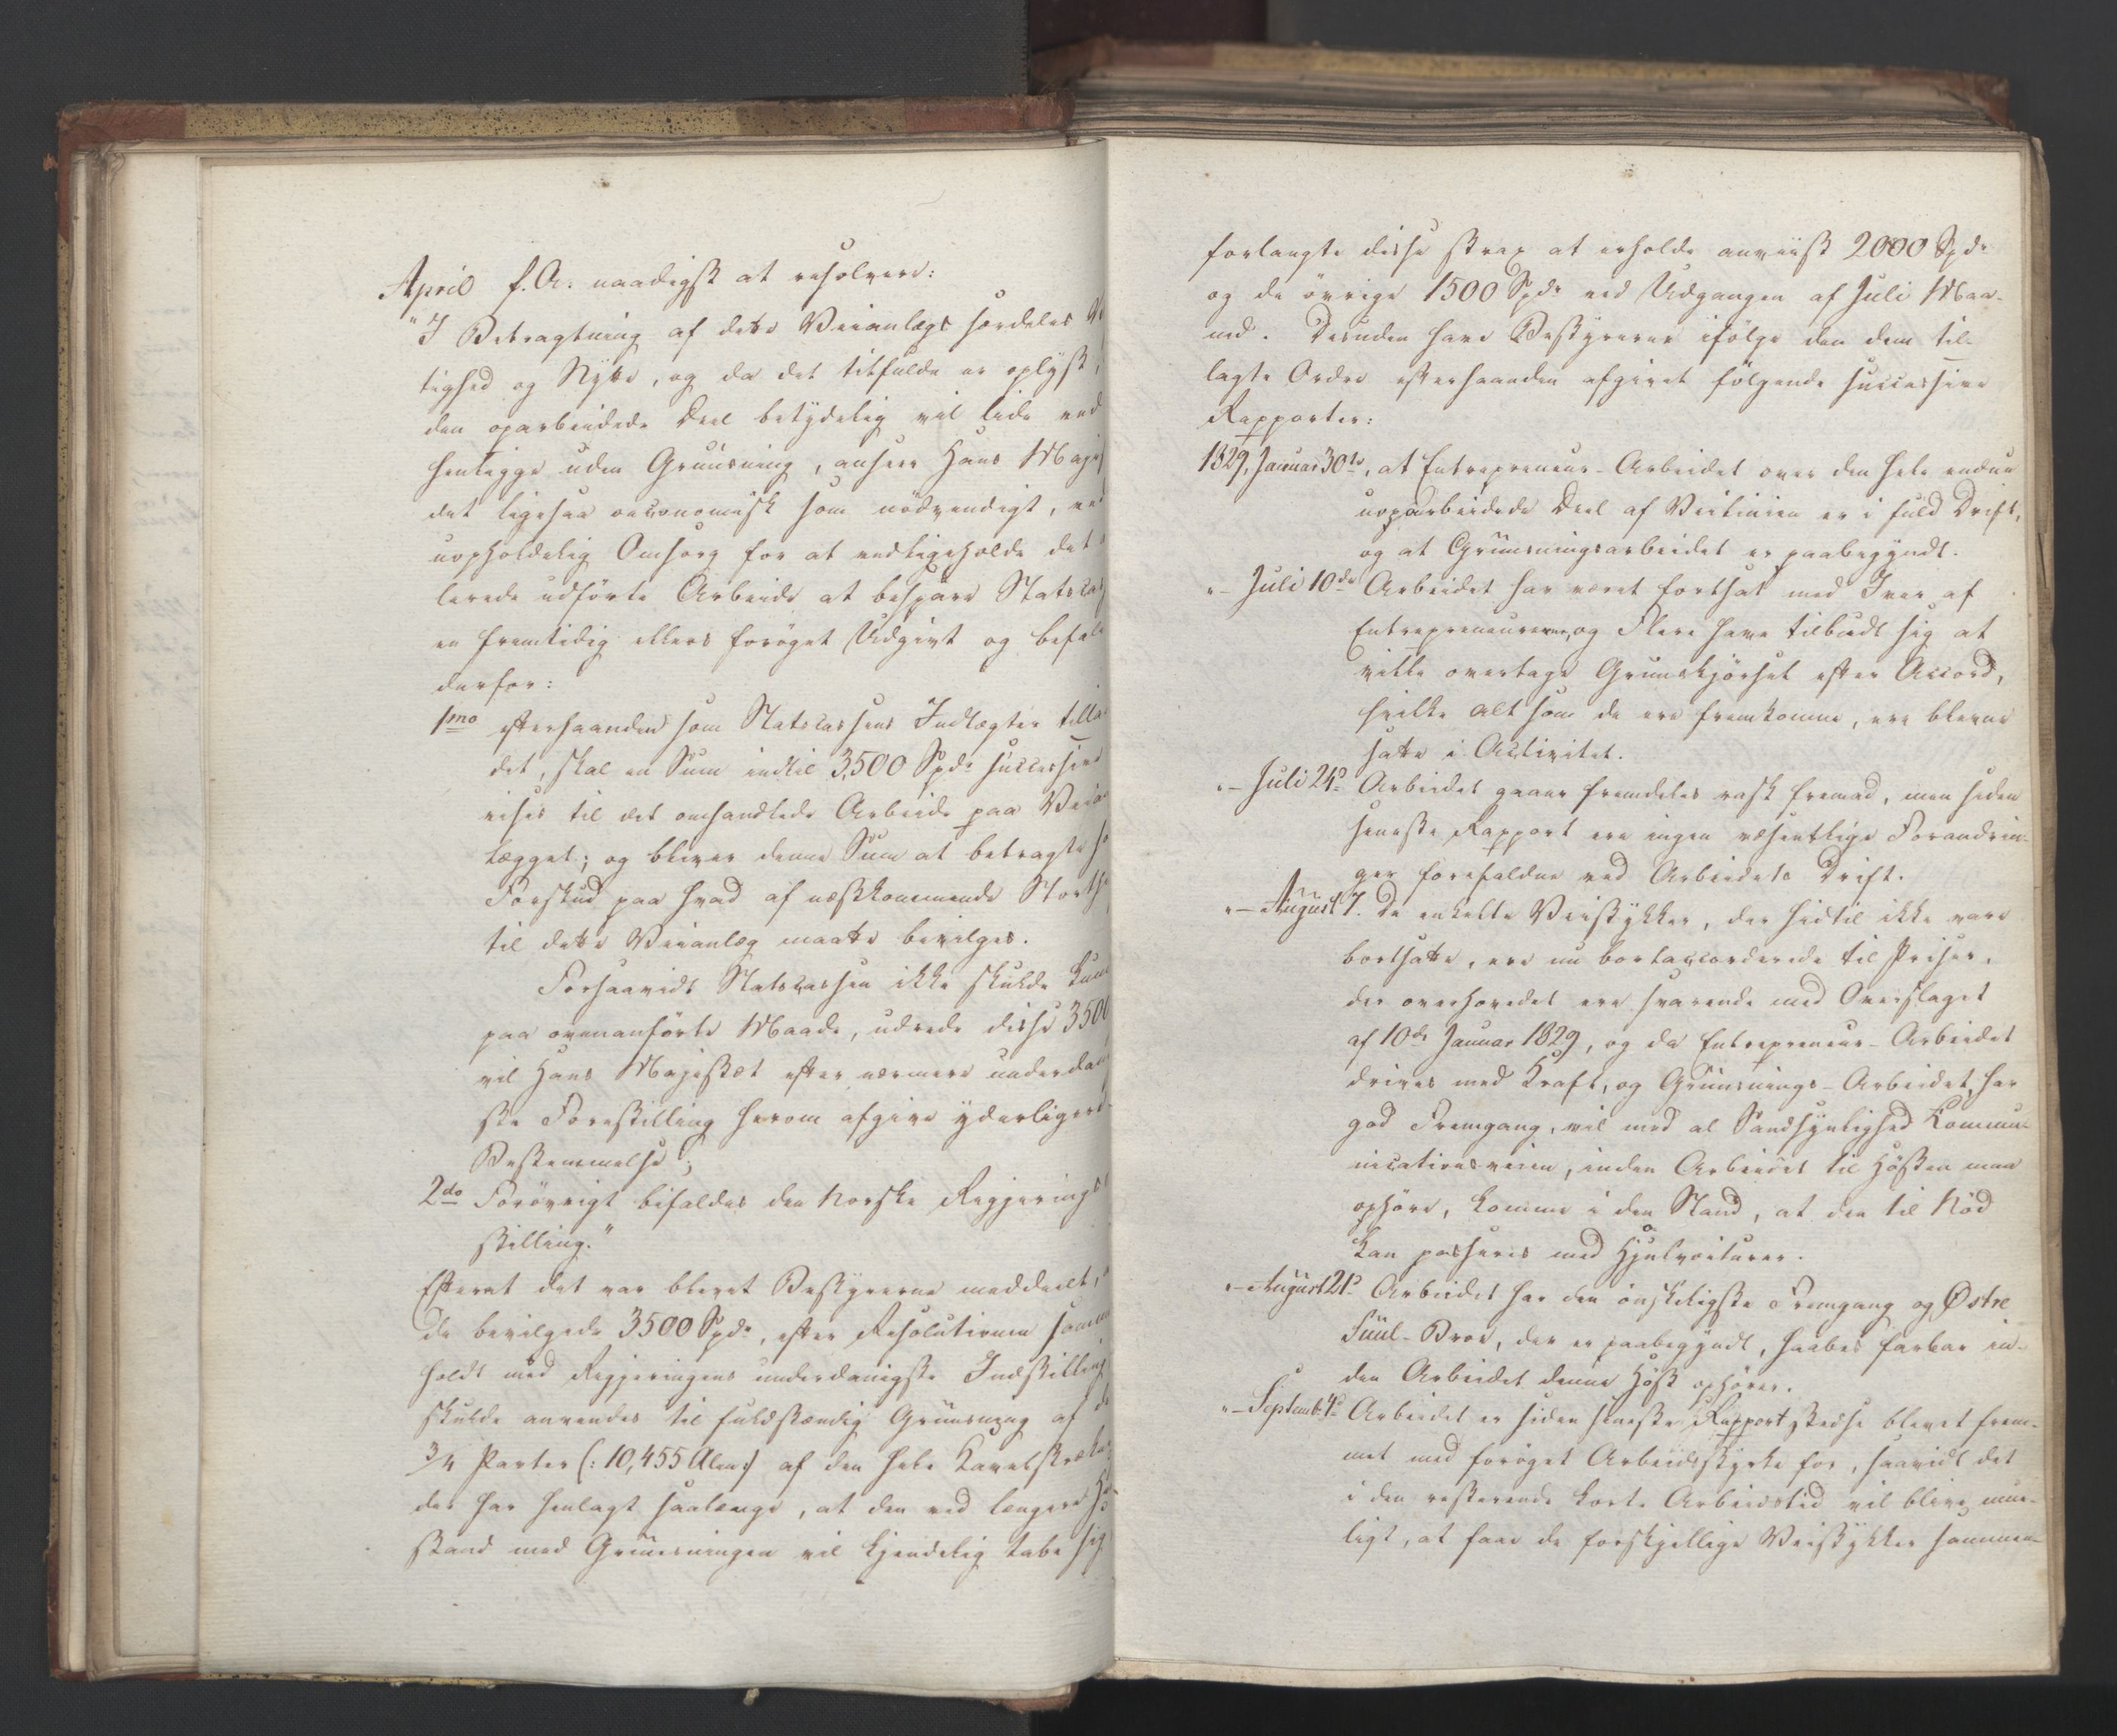 April f. A. naadigst at resolvere:
"I Betragtning af dette Veianlægs særdeles Vig
tighed og Nytte, og da det tilfulde er oplyst,
den oparbeidede Deel betydelig vil lide ved
henligge uden Gruusning, anseer Hans Majes
det ligesaa oeconomisk som nödvendigt, ved
uopholdelig Omsorg for at vedligeholde det
lerede udförte Arbeide at bespare Statscas
en fremtidig ellers foröget Udgivt og befale
derfor:
1mo efterhaanden som Statscassens Indtægter tilla
det, skal en Sum indtil 3,500 Spdr successive
vises til det omhandlede Arbeide paa Veian
lægget; og bliver denne Sum at betragte so
Forskud paa hvad af næstkommende Storth
til dette Veianlæg maatte bevilges.
Forsaavidt Statscassen ikke skulde kun
paa ovenanförte Maade, udrede disse 3500
vil Hans Majestæt efter nærmere underdan
ste Forestilling herom afgive yderligere
Bestemmelse;
2do Forövrigt bifaldes den Norske Regjerings
stilling."
Efterat det var blevet Bestyrerne meddeelt,
de bevilgede 3500 Spdr, efter Resolutionen sammen
holdt med Regjeringens underdanigste Indstilling
skulde anvendes til fuldstændig Gruusning af de
3/4 Parter (: 10,455 Alen :) af den hele Kavelstræk
der har henlagt saalænge, at den ved længere He
stand med Gruusningen vil kjendelig tabe sig
forlangte disse strax at erholde anviist 2000 Spdr
og de övrige 1500 Spdr ved Udgangen af Juli Maa-
ned. Desuden have Bestyrerne ifölge den dem til-
lagte Ordre efterhaanden afgivet fölgende successive
Rapporter:
1829, Januar 30te, at Entrepreneur-Arbeidet over den hele endnu
uoparbeidede Deel af Veilinien er i fuld Drift,
og at Gruusningsarbeidet er paabegyndt.
"– Juli 10de Arbeidet har været fortsat med Iver af
Entrepreneurerne, og Flere have tilbudt sig at
ville overtage Gruuskjörset efter Accord,
hvilke alt som de ere fremkomne, ere blevne
satte i Activitet.
"– Juli 24de Arbeidet gaaer fremdeles rask fremad, men siden
seneste Rapport ere ingen væsentlige Forandrin-
ger forefaldne ved Arbeidets Drift.
"– August 7. De enkelte Veistykker, der hidtil ikke vare
bortsatte, ere nu bortaccorderede til Priser,
der overhovedet ere svarende med Overslaget
af 10de Januar 1829, og da Entrepreneur-Arbeidet
drives med Kraft, og Gruusnings-Arbeidet har
god Fremgang, vil med al Sandsynlighed Kommu-
nicationsveien, inden Arbeidet til Hösten maa
ophöre, komme i den Stand, at den til Nöd
kan passeres med Hjulvoiturer.
"– August 21de Arbeidet har den önskeligste Fremgang og Østre
Suul-Broe, der er paabegyndt, haabes farbar in-
den Arbeidet denne Höst ophörer.
"– Septemb. 4de Arbeidet er siden seneste Rapport stedse blevet frem-
met med foröget Arbeidsstyrke for, saavidt det
i den resterende korte Arbeidstid vil blive mue-
ligt, at faae de forskjellige Veistykker sammen-